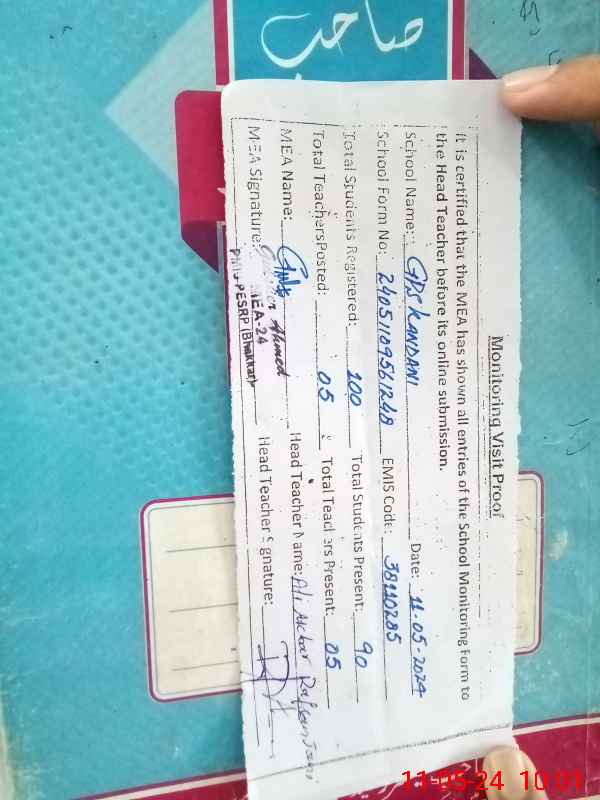 صاحب
Monitoring Visit Proof
It is certified that the MEA has shown all entries of the School Monitoring Form to
the Head Teacher before its online submission.
School Name: GPS KANDANI Date: 11-05-2024
School Form No: 24051109561248 EMIS Code: 38110285
Total Students Registered: 100 Total Students Present: 90
Total TeachersPosted: 05 Total Teachers Present: 05
MEA Name: Head Teacher Name: Ali Akbar Rafsanjani
MEA Signature: Head Teacher Signature:
Ahmed
MEA-24
PMIU-PESRP (Bhakkar)
11-05-24 10:01